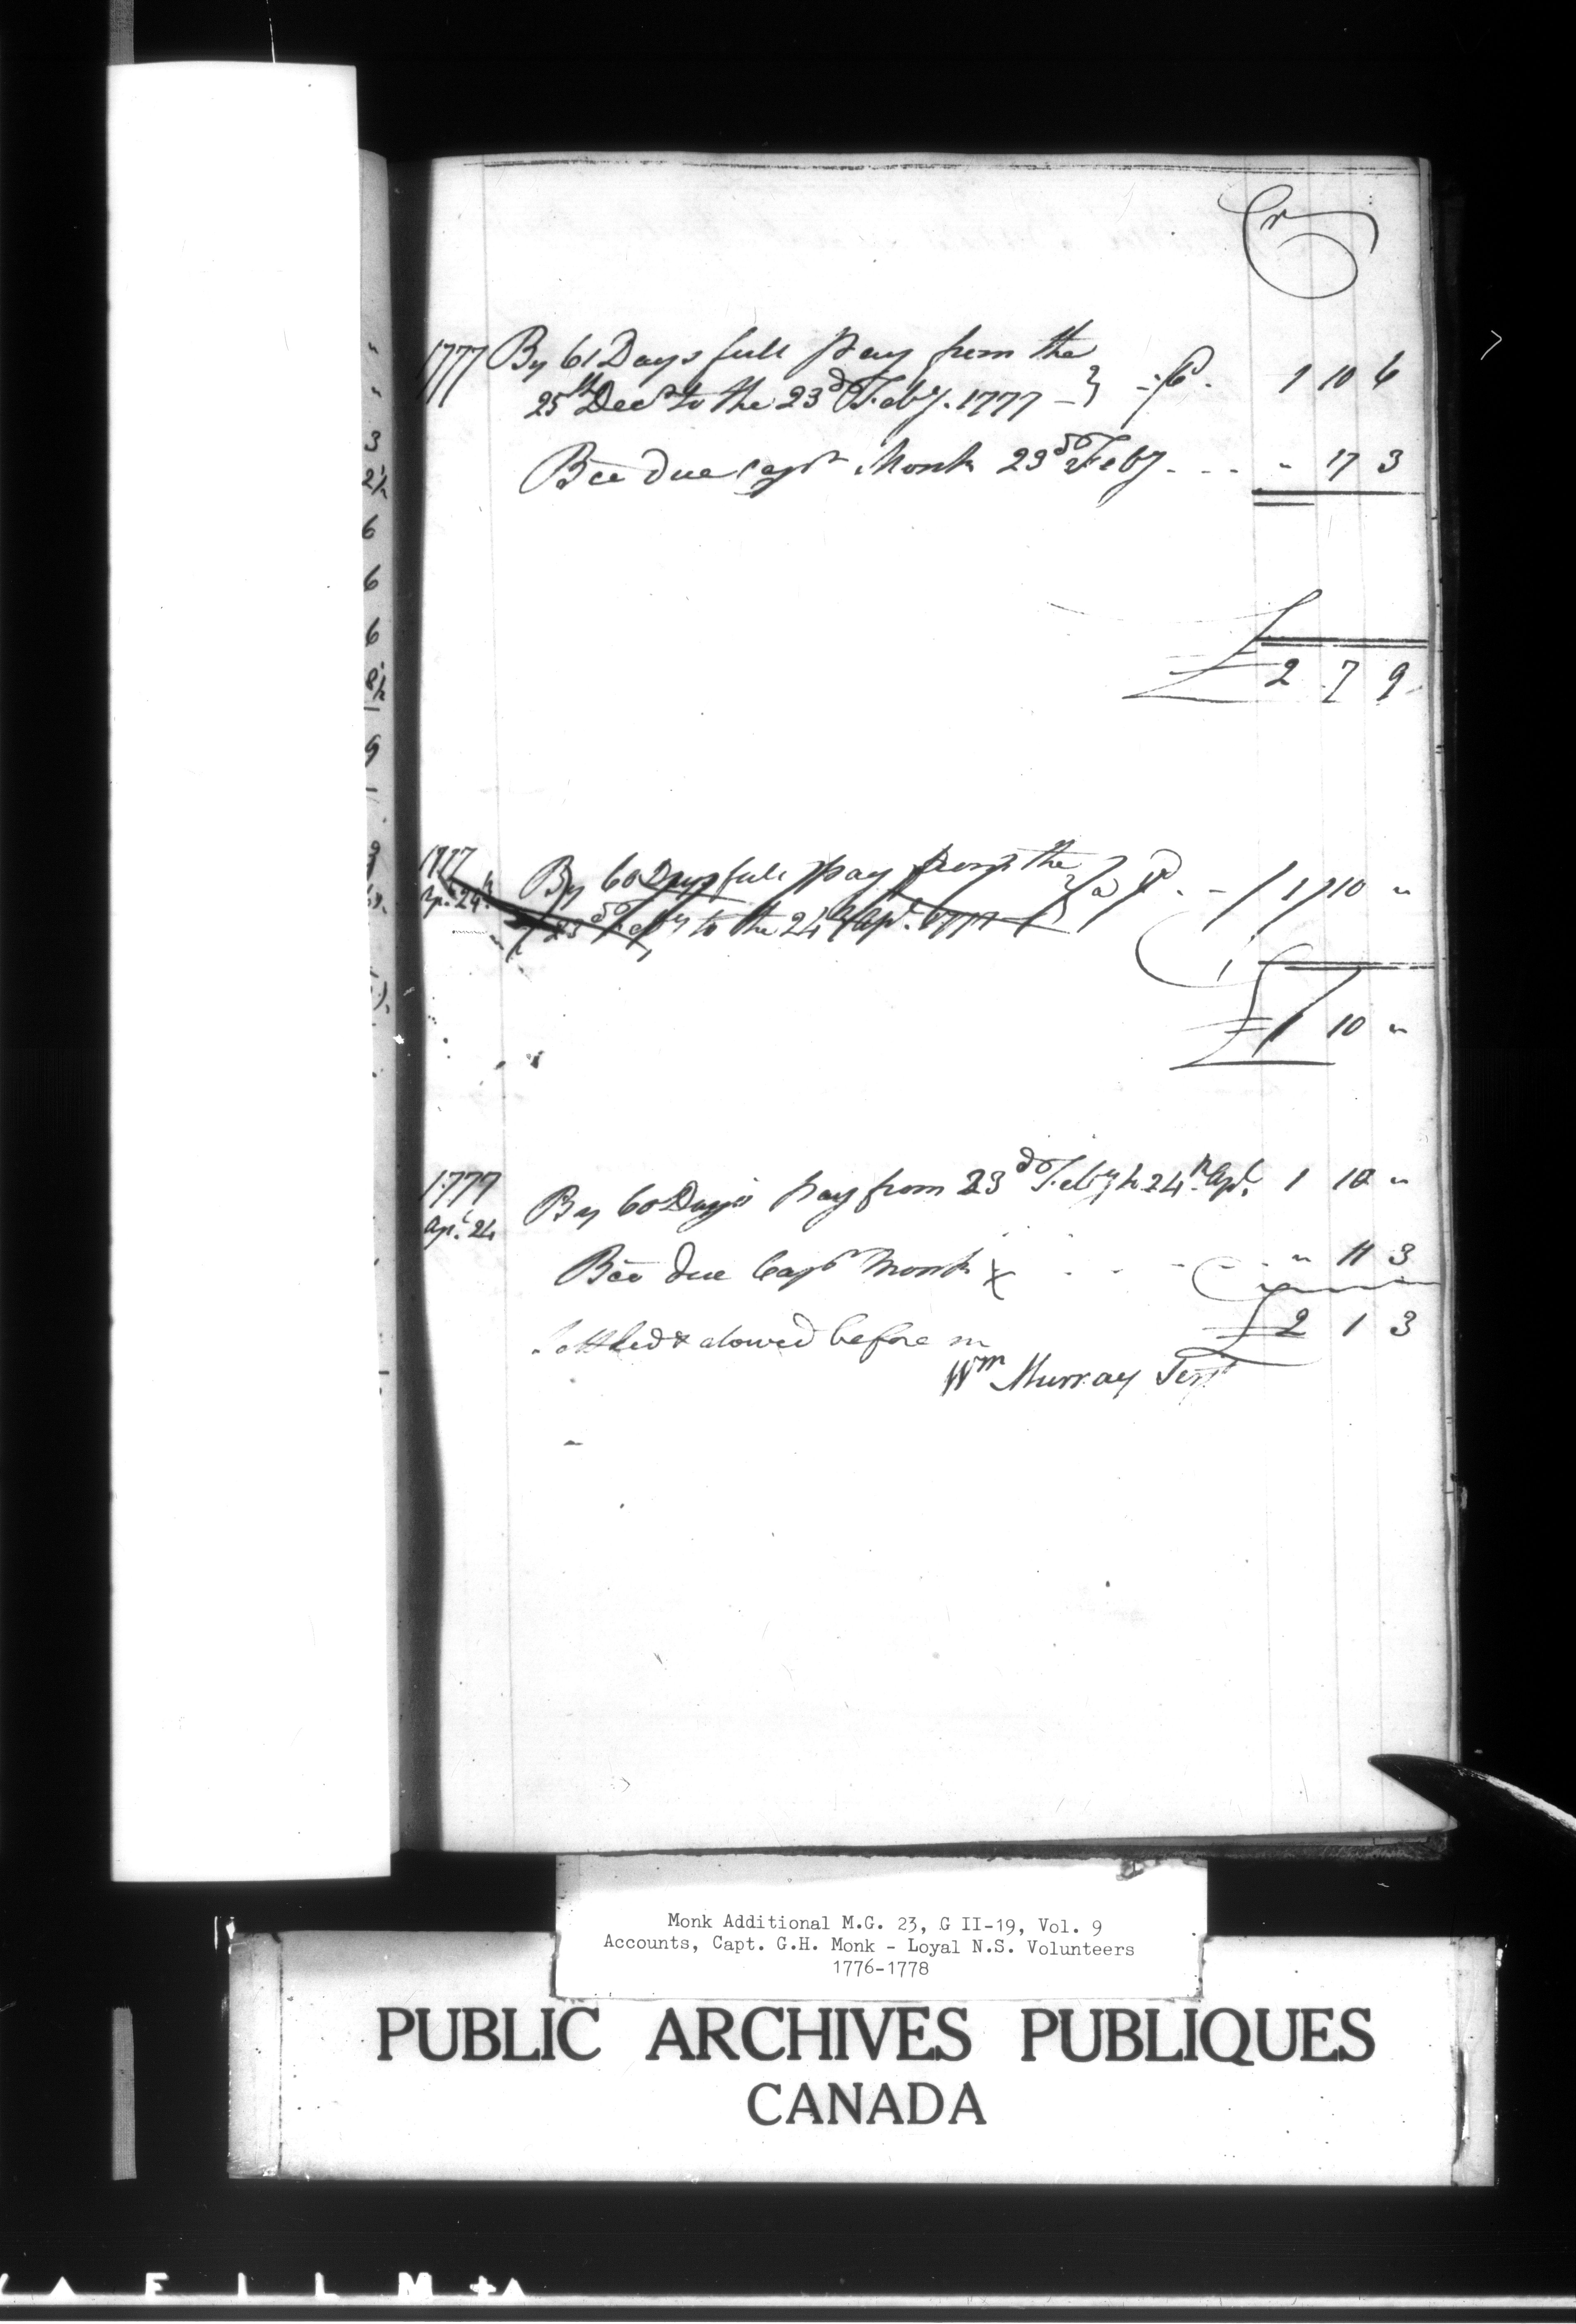 Cr
1777 By 61 Days full pay from the
25th Decr to the 23d Feby. 1777 - 6d. 1 10 6
Bce due Capt Monk 23d Feby - - - " 17 3
£ 2 7 9
1777 By 60 Days full pay from the
Apl. 24th 23d Feby to the 24th Apl. 1777 a 6d. - 1 10 "
£ 1 10 "
1777 By 60 Days pay from 23d Feby to 24th Apl. 1 10 "
Apl. 24
Bce due Capt Monk " 11 3
Settled & alowed before m £ 2 1 3
Wm Murray Serjt
3
2½
6
6
6
8½
9
Monk Additional M.G. 23, G II-19, Vol. 9
Accounts, Capt. G.H. Monk - Loyal N.S. Volunteers
1776-1778
PUBLIC ARCHIVES PUBLIQUES
CANADA
FILM